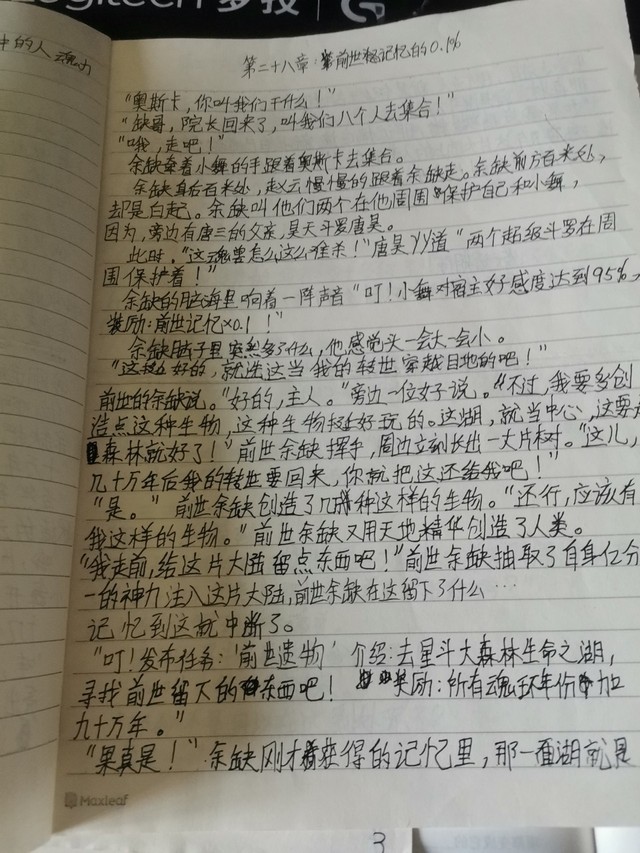 Logitech 罗技
中的人魂力
第二十八章：前世记忆的0.1%
“奥斯卡，你叫我们干什么！”
“缺哥，院长回来了，叫我们八个人去集合！”
“哦，走吧！”
余缺牵着小舞的手跟着奥斯卡去集合。
余缺身后百米处，赵云慢慢的跟着余缺走。余缺前方百米处，
却是白起。余缺叫他们两个在他周围保护自己和小舞，
因为，旁边有唐三的父亲，昊天斗罗唐昊。
此时，“这魂兽怎么这么难杀！”唐昊道“两个超级斗罗在周
围保护着！”
余缺的脑海里响着一阵声音“叮！小舞对宿主好感度达到95%
奖励：前世记忆×0.1！”
余缺脑子里突然多了什么，他感觉头一会大一会小。
“这好的，就选这当我的转世穿越目地的吧！”
前世的余缺说。“好的，主人。”旁边一位女子说。“不过，我要多创
造点这种生物，这种生物挺好玩的。这湖，就当中心，这要是
森林就好了！”前世余缺挥手，周边立刻长出一大片树。“这儿，
几十万年后我的转世要回来，你就把这还给我吧！”
“是。”前世余缺创造了几种这样的生物。“还行，应该有
我这样的生物。”前世余缺又用天地精华创造了人类。
“我走前，给这片大陆留点东西吧！”前世余缺抽取了自身亿分
一的神力注入这片大陆，前世余缺在这留下了什么…
记忆到这就中断了。
“叮！发布任务：‘前世遗物’介绍：去星斗大森林生命之湖，
寻找前世留下的东西吧！奖励：所有魂环年份加
九十万年。”
“果真是！”余缺刚才获得的记忆里，那一面湖就是
Maxleaf
3